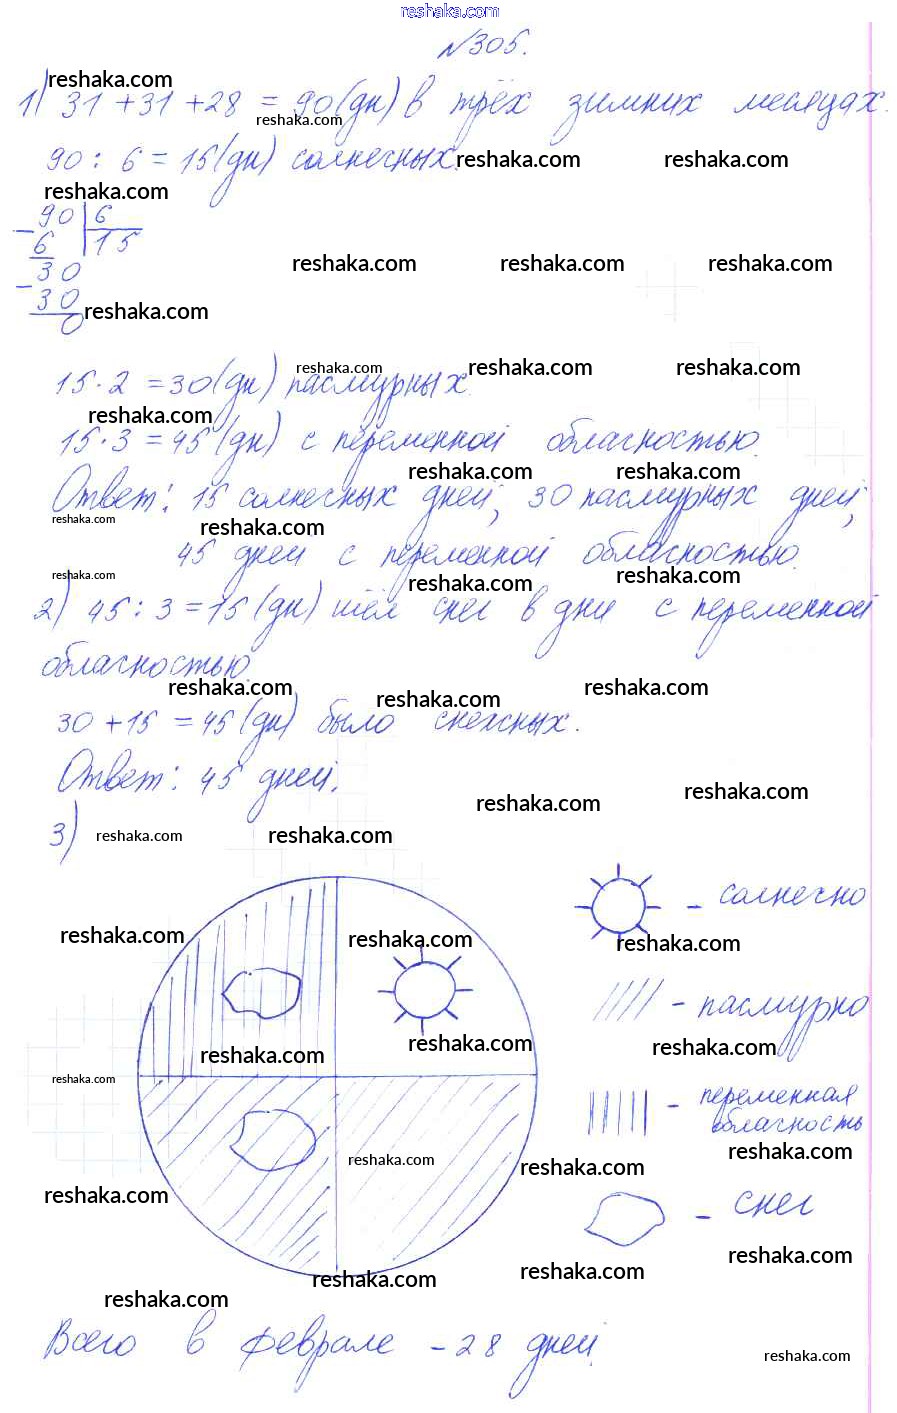 reshaka.com
№305.
1) 31 + 31 + 28 = 90 (дн) в трёх зимних месяцах.
reshaka.com
reshaka.com
90 : 6 = 15 (дн) солнечных.
reshaka.com reshaka.com
reshaka.com
90 | 6
- 6 | 15
30
- 30
0
reshaka.com reshaka.com reshaka.com
reshaka.com
15 · 2 = 30 (дн) пасмурных.
reshaka.com reshaka.com reshaka.com
reshaka.com
15 · 3 = 45 (дн) с переменной облачностью.
reshaka.com reshaka.com
Ответ: 15 солнечных дней, 30 пасмурных дней,
reshaka.com reshaka.com
45 дней с переменной облачностью.
reshaka.com reshaka.com reshaka.com
2) 45 : 3 = 15 (дн) шёл снег в дни с переменной
облачностью.
reshaka.com reshaka.com reshaka.com
30 + 15 = 45 (дн) было снежных.
Ответ: 45 дней.
reshaka.com reshaka.com
3)
reshaka.com reshaka.com
- солнечно
reshaka.com reshaka.com reshaka.com
- пасмурно
reshaka.com reshaka.com reshaka.com
reshaka.com
- переменная
облачность
reshaka.com reshaka.com reshaka.com
reshaka.com
- снег
reshaka.com reshaka.com reshaka.com
reshaka.com
Всего в феврале - 28 дней.
reshaka.com